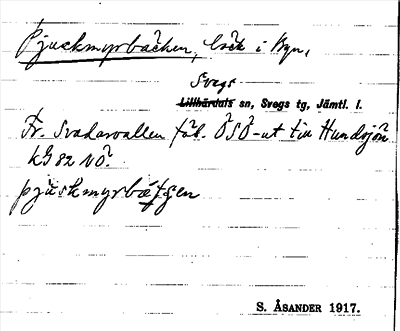 Pjuckmyrbäcken, bäck i Byn,
Svegs
Lillhärdals sn, Svegs tg, Jämtl. l.
Fr. Svadervallen fäb. ÖSÖ-ut till Hundsjön
kG 82 NÖ.
pjuckmyrbætjen
S. ÅSANDER 1917.